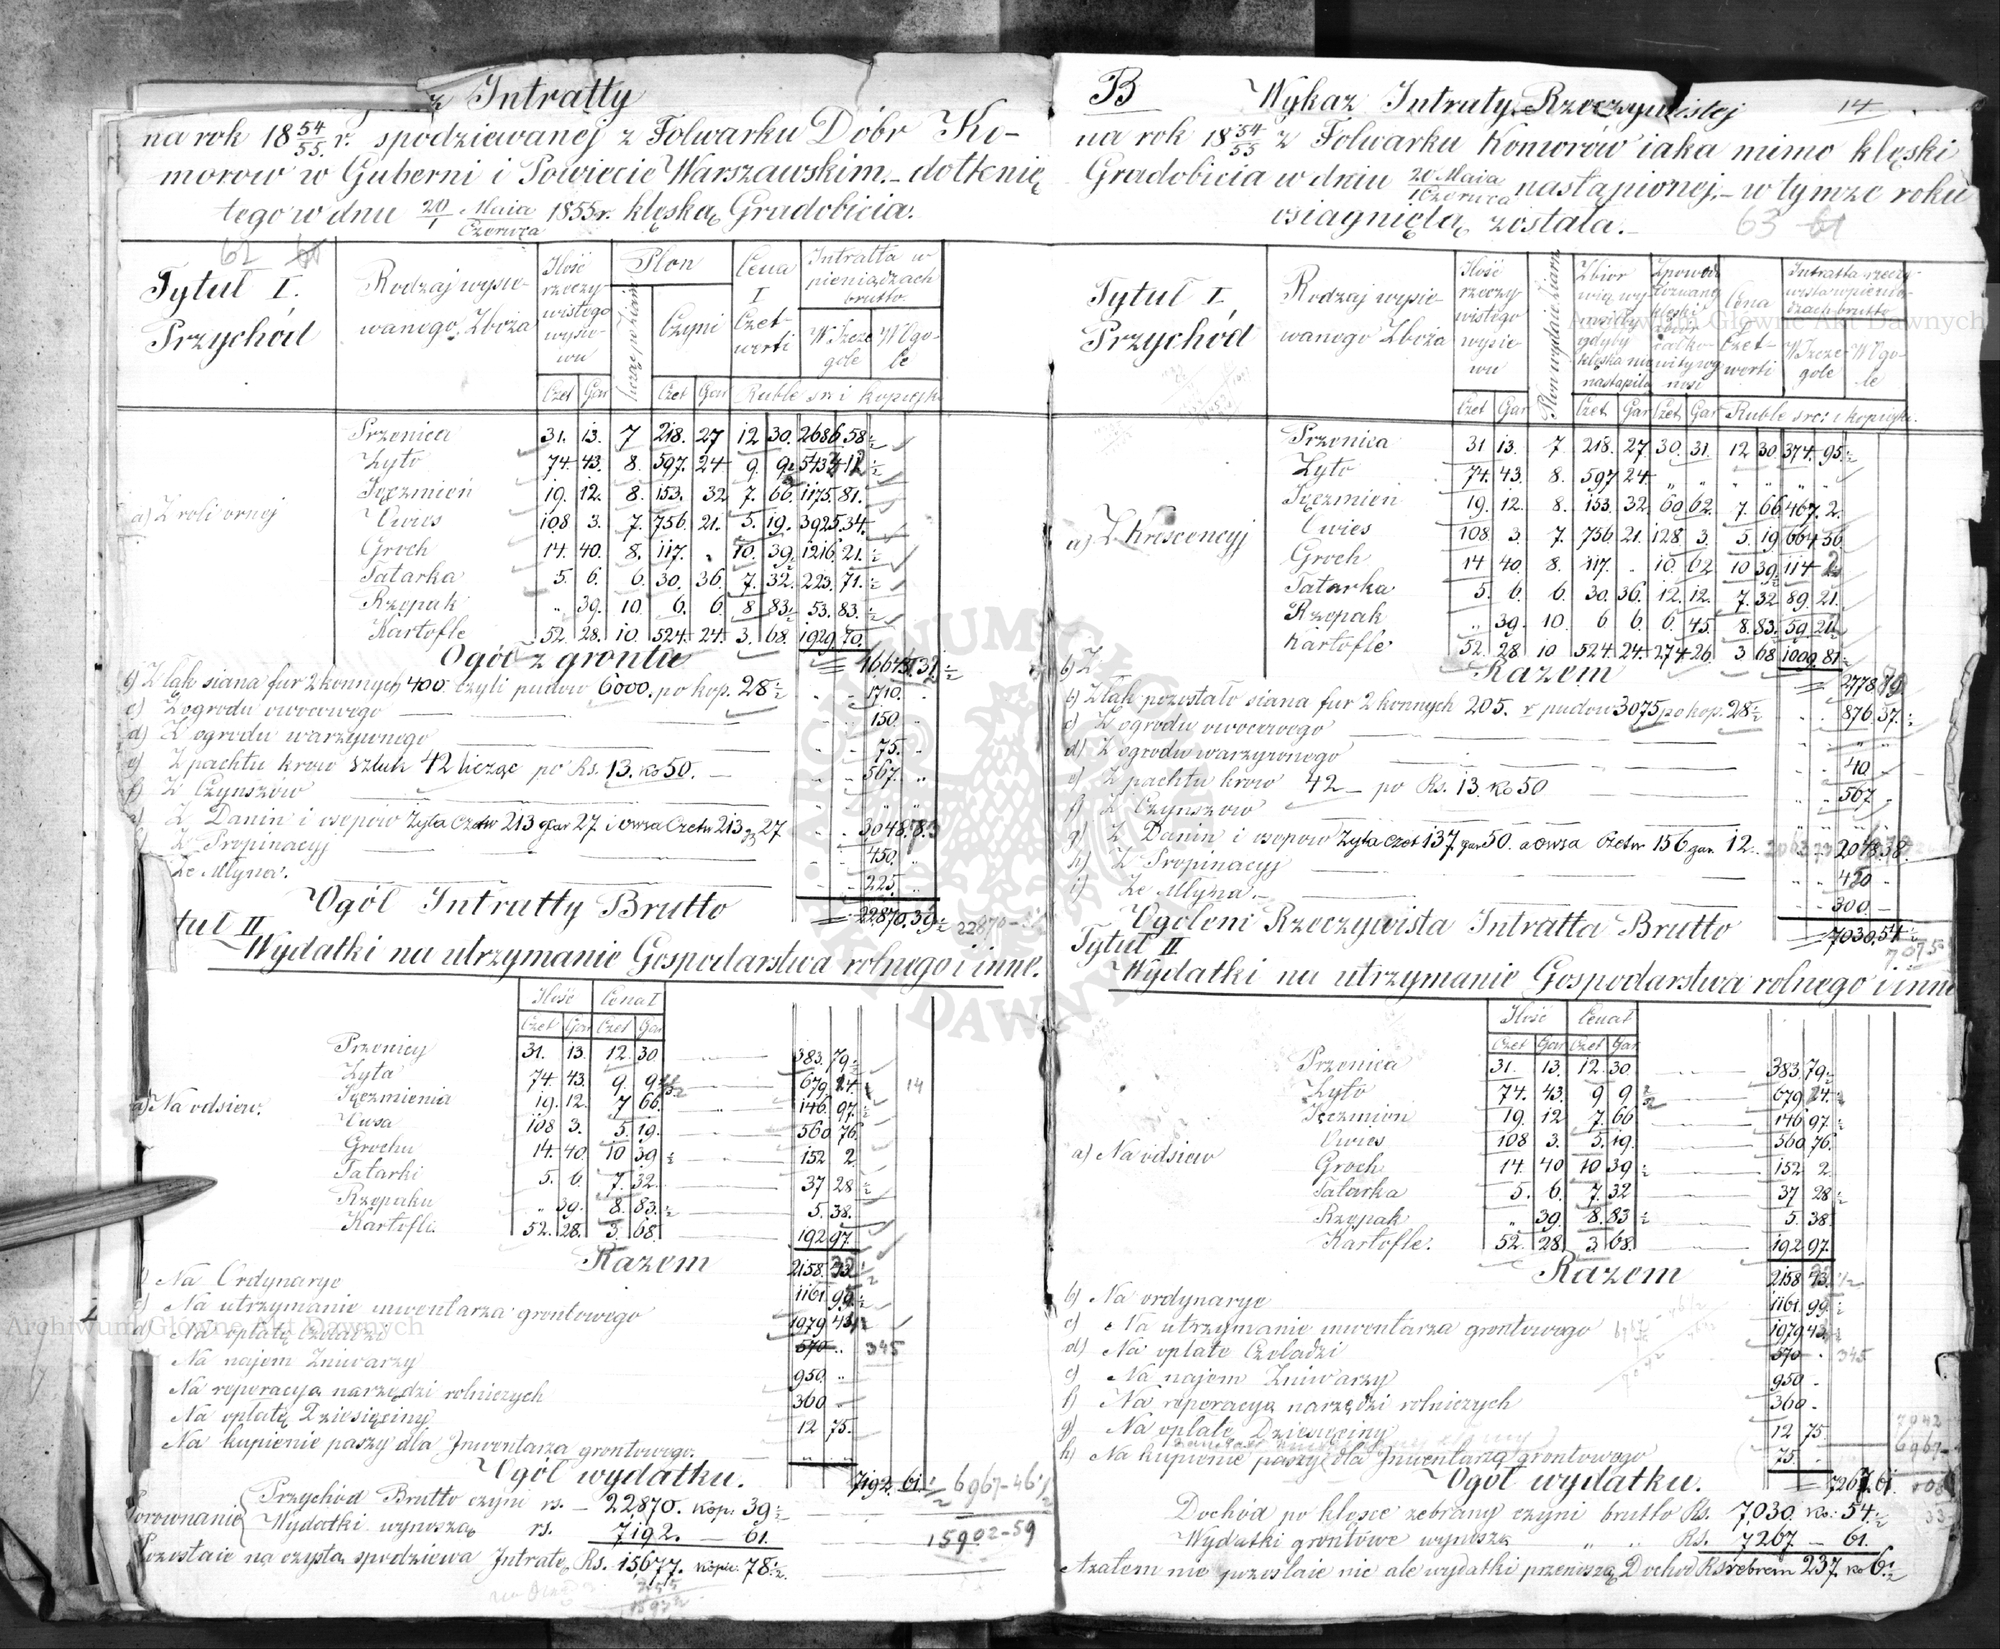 z Intratty
na rok 18 54/55 r. spodziewanej z Folwarku Dóbr Ko-
morow w Guberni i Powiecie Warszawskim – dotknię
tego w dniu 20/1 Maia/Czerwca 1855 r. klęską Gradobicia.
62
Tytuł I.
Przychód
Rodzaj wysie-
wanego Zboża
Ilość
rzeczy
wistego
wysie-
wu
Plon
licząc po ziarn
Czyni
Cena
1
Czet-
werti
Intratta w
pieniądzach
brutto.
W Szcze
gole
W Ogo-
le
Czet Gar Czet Gar Ruble sr. i kopiejki
a) Z roli ornej
Pszenica 31. 13. 7 218. 27 12 30. 2686 58 ½
Żyto 74. 43. 8. 597. 24 9. 9½
Jęczmień 19. 12. 8. 153. 32 7. 66. 1175. 81.
Owies 108 3. 7. 756. 21. 5. 19. 3925. 34.
Groch 14. 40. 8. 117. „ 10. 39½ 1216. 21. ½
Tatarka 5. 6. 6. 30. 36. 7. 32. 223. 71. ½
Rzepak „ 39. 10. 6. 6 8 83½ 53. 83. ½
Kartofle 52. 28. 10. 524. 24. 3. 68. 1929. 70.
Ogół z grontu
Z łąk siana fur 2 konnych 400. czyli pudow 6000. po kop. 28 ½ 1710.
c) Z ogrodu owocowego 150
d) Z ogrodu warzywnego 75.
e) Z pachtu krow sztuk 42 licząc po Rs. 13. ko 50. 567.
f) Z Czynszow
Z Danin i osepow Żyta Czetw 213 gar 27 i owsa Czetw 213 g 27 3048.
Z Propinacyj 450.
Ze Młyna. 225.
Ogół Intratty Brutto 22870. 39 ½ 22870
tuł II
Wydatki na utrzymanie Gospodarstwa rolnego i inne.
Ilość Cena 1
Czet Gar Czet Gar
a) Na odsiew.
Pszenicy 31. 13. 12. 30 383. 79 ½
Żyta 74. 43. 9. 9 679 14
Jęczmienia 19. 12. 7 66. 146. 97. ½
Owsa 108 3. 5. 19. 560 76.
Grochu 14. 40. 10 39 ½ 152 2
Tatarki 5. 6. 7. 32. 37 28 ½
Rzepaku „ 39. 8. 83. ½ 5. 38.
Kartofli. 52. 28. 3. 68. 192 97.
Razem 2158.
Na Ordynarye 1161. 99. ½
c) Na utrzymanie inwentarza grontowego 1979
d) Na opłatę Czeladzi 570 345
Na najem Żniwarzy 950.
Na reperacyą narzędzi rolniczych 360
Na opłatę Dziesięciny 12 75.
Na kupienie paszy dla Inwentarza grontowego.
Ogół wydatku. 7192. 61. ½ 6967-46 ½
Porownanie
Przychód Brutto czyni rs. – 22,870. kop. 39 ½
Wydatki wynoszą rs. 7192. — 61. 15902-59
Pozostaie na czystą spodziewą Intratę Rs. 15,677. kopie. 78 ½.
B Wykaz Intraty Rzeczywistej 14
na rok 18 54/55 z Folwarku Komorów iaka mimo klęski
Gradobicia w dniu 20 Maia/1 Czerwca nastąpionej, – w tymże roku
osiągniętą została. –
63
Tytuł I.
Przychód
Rodzaj wysie-
wanego Zboża
Ilość
rzeczy-
wistego
wysie-
wu
Plon wydaie ziarn
Zbior
gdyby
klęska nie
nastąpiła
Cena
Czet-
werti
Intratta rzeczy-
wista w pienią-
dzach brutto
W Szcze
gole
W Ogo-
le
Czet Gar Czet Gar Czet Gar Ruble sre: i kopiejki.
a) Z Krescencyj
Pszenica 31 13. 7 218. 27. 30. 31. 12 30. 374. 95. ½
Żyto 74. 43. 8. 597 24 „ „ „ „ „ „
Jęczmien 19. 12. 8. 153. 32 60 62. 7 66 467. 2.
Owies 108 3. 7. 756 21. 128 3. 5. 19 664 56.
Groch 14 40. 8. 117. „ 10. 62 10 39½ 114
Tatarka 5. 6. 6. 30. 36. 12. 12. 7. 32 89. 21.
Rzepak „ 39. 10. 6 6. 6. 45. 8. 83. 59.
Kartofle 52. 28 10 524. 24. 274 26. 3 68 1009. 81.
Razem 2778
b) Z łąk pozostało siana fur 2 konnych 205. r pudow 3075 po kop. 28 ½ 876. 57. ½
c) Z ogrodu owocowego
d) Z ogrodu warzywnego 40
e) Z pachtu krow 42 – po Rs. 13. ko 50 567
f) Z Czynszow
g) Z Danin i osepow Żyta Czet 137 gar 50. a owsa Czetw 156 gar. 12. 2048. 38.
h) Z Propinacyj 420
i) Ze Młyna. – 300.
Ogołem Rzeczywista Intratta Brutto 7030. 54 ½
Tytuł II
Wydatki na utrzymanie Gospodarstwa rolnego i inne
Ilość Cena 1
Czet Gar Czet Gar
a) Na odsiew
Pszenica 31. 13. 12. 30. 383. 79 ½
Żyto 74. 43. 9 9 679 24
Jęczmien 19. 12 7. 66 146 97. ½
Owies 108 3. 5. 19. 560 76.
Groch 14. 40 10 39 ½ 152 2
Tatarka 5. 6. 7. 32 37 28 ½
Rzepak „ 39. 8. 83 ½ 5. 38.
Kartofle. 52. 28. 3 68. 192 97.
Razem 2158
b) Na ordynarye 1161. 99. ½
c) Na utrzymanie inwentarza grontowego 1979
d) Na opłatę Czeladzi 570 345
e) Na najem Żniwarzy 950
f) Na reperacyą narzędzi rolniczych 360
g) Na opłatę Dziesięciny 12 75.
h) Na kupienie paszy dla Inwentarza grontowego 75.
Ogół wydatku. 7267. 61.
Dochód po klęsce zebrany czyni brutto Rs. 7,030. ko: 54. ½
Wydatki grontowe wynoszą „ „ Rs. 7267 — 61.
A zatem nie pozostaie nic ale wydatki przenoszą Dochod Rs srebrem 237. ko 6. ½
Archiwum Główne Akt Dawnych
Archiwum Główne Akt Dawnych
ARCHIWUM GŁÓWNE AKT DAWNYCH